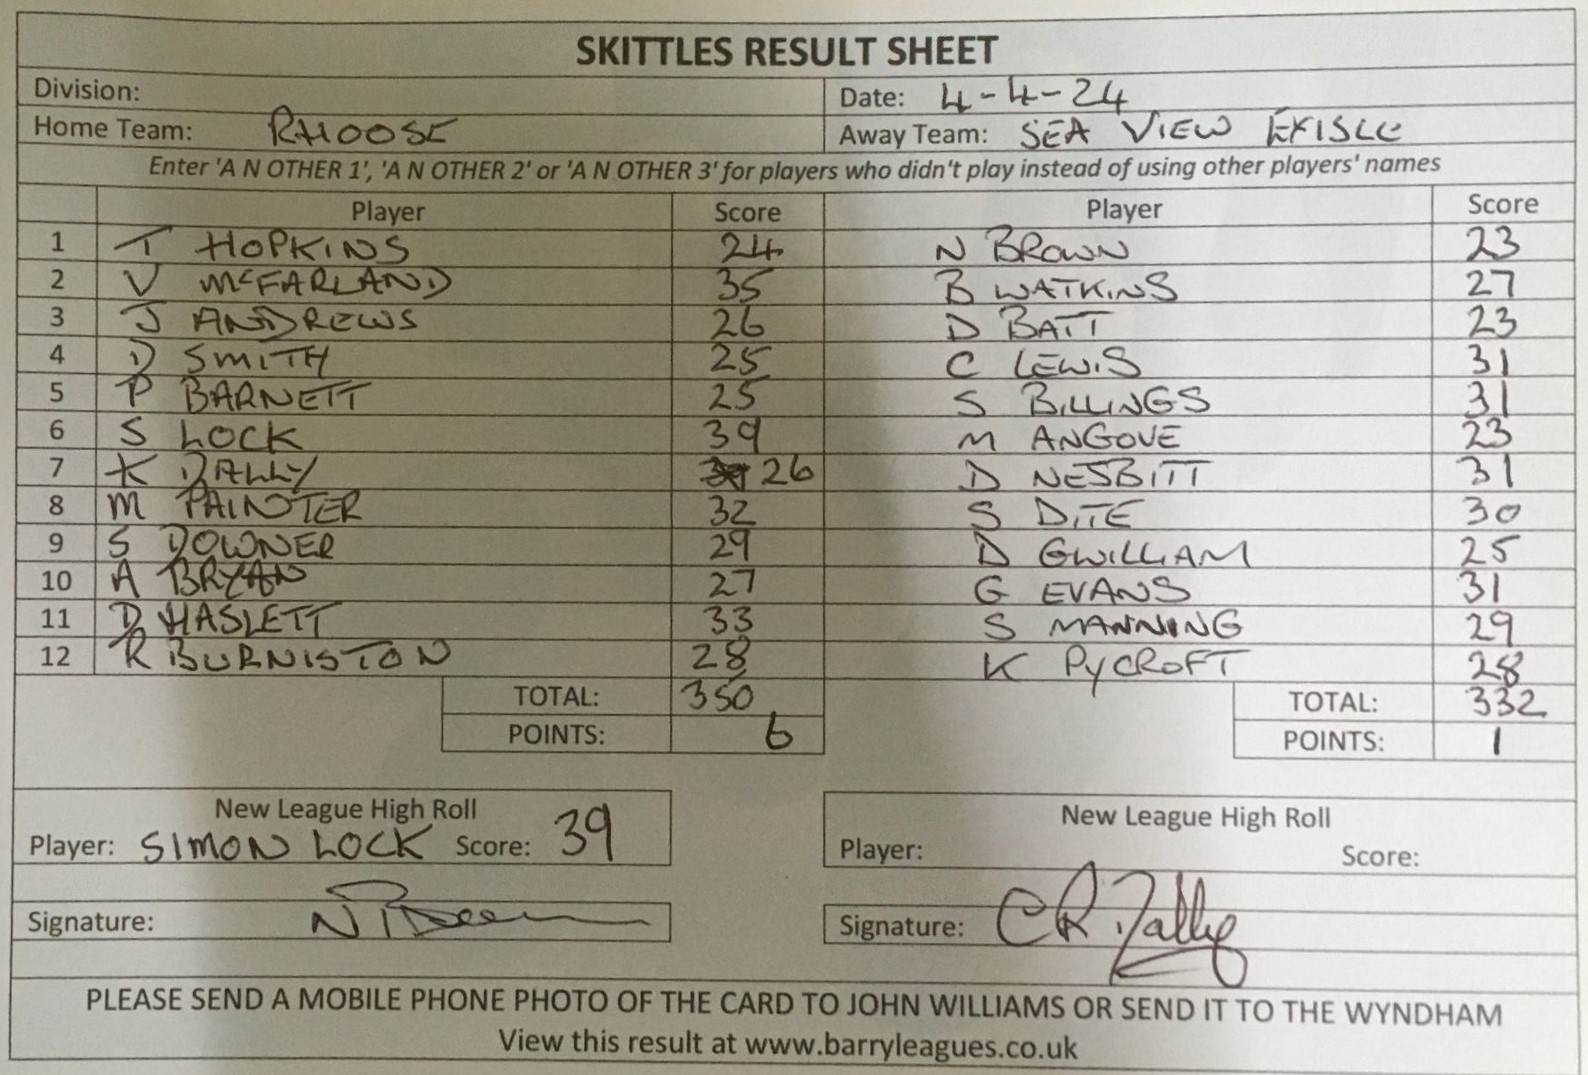 SKITTLES RESULT SHEET
Division: Date: 4-4-24
Home Team: RHOOSE Away Team: SEA VIEW EXISLE
Enter 'A N OTHER 1', 'A N OTHER 2' or 'A N OTHER 3' for players who didn't play instead of using other players' names
Player Score Player Score
1 T HOPKINS 24 N BROWN 23
2 V McFARLAND 35 B WATKINS 27
3 J ANDREWS 26 D BATT 23
4 D SMITH 25 C LEWIS 31
5 P BARNETT 25 S BILLINGS 31
6 S LOCK 39 M ANGOVE 23
7 K DALLY 26 D NESBITT 31
8 M PAINTER 32 S DITE 30
9 S DOWNER 29 D GWILLIAM 25
10 A BRYAN 27 G EVANS 31
11 D HASLETT 33 S MANNING 29
12 R BURNISTON 28 K PYCROFT 28
TOTAL: 350 TOTAL: 332
POINTS: 6 POINTS: 1
New League High Roll New League High Roll
Player: SIMON LOCK Score: 39 Player: Score:
Signature: Signature:
PLEASE SEND A MOBILE PHONE PHOTO OF THE CARD TO JOHN WILLIAMS OR SEND IT TO THE WYNDHAM
View this result at www.barryleagues.co.uk